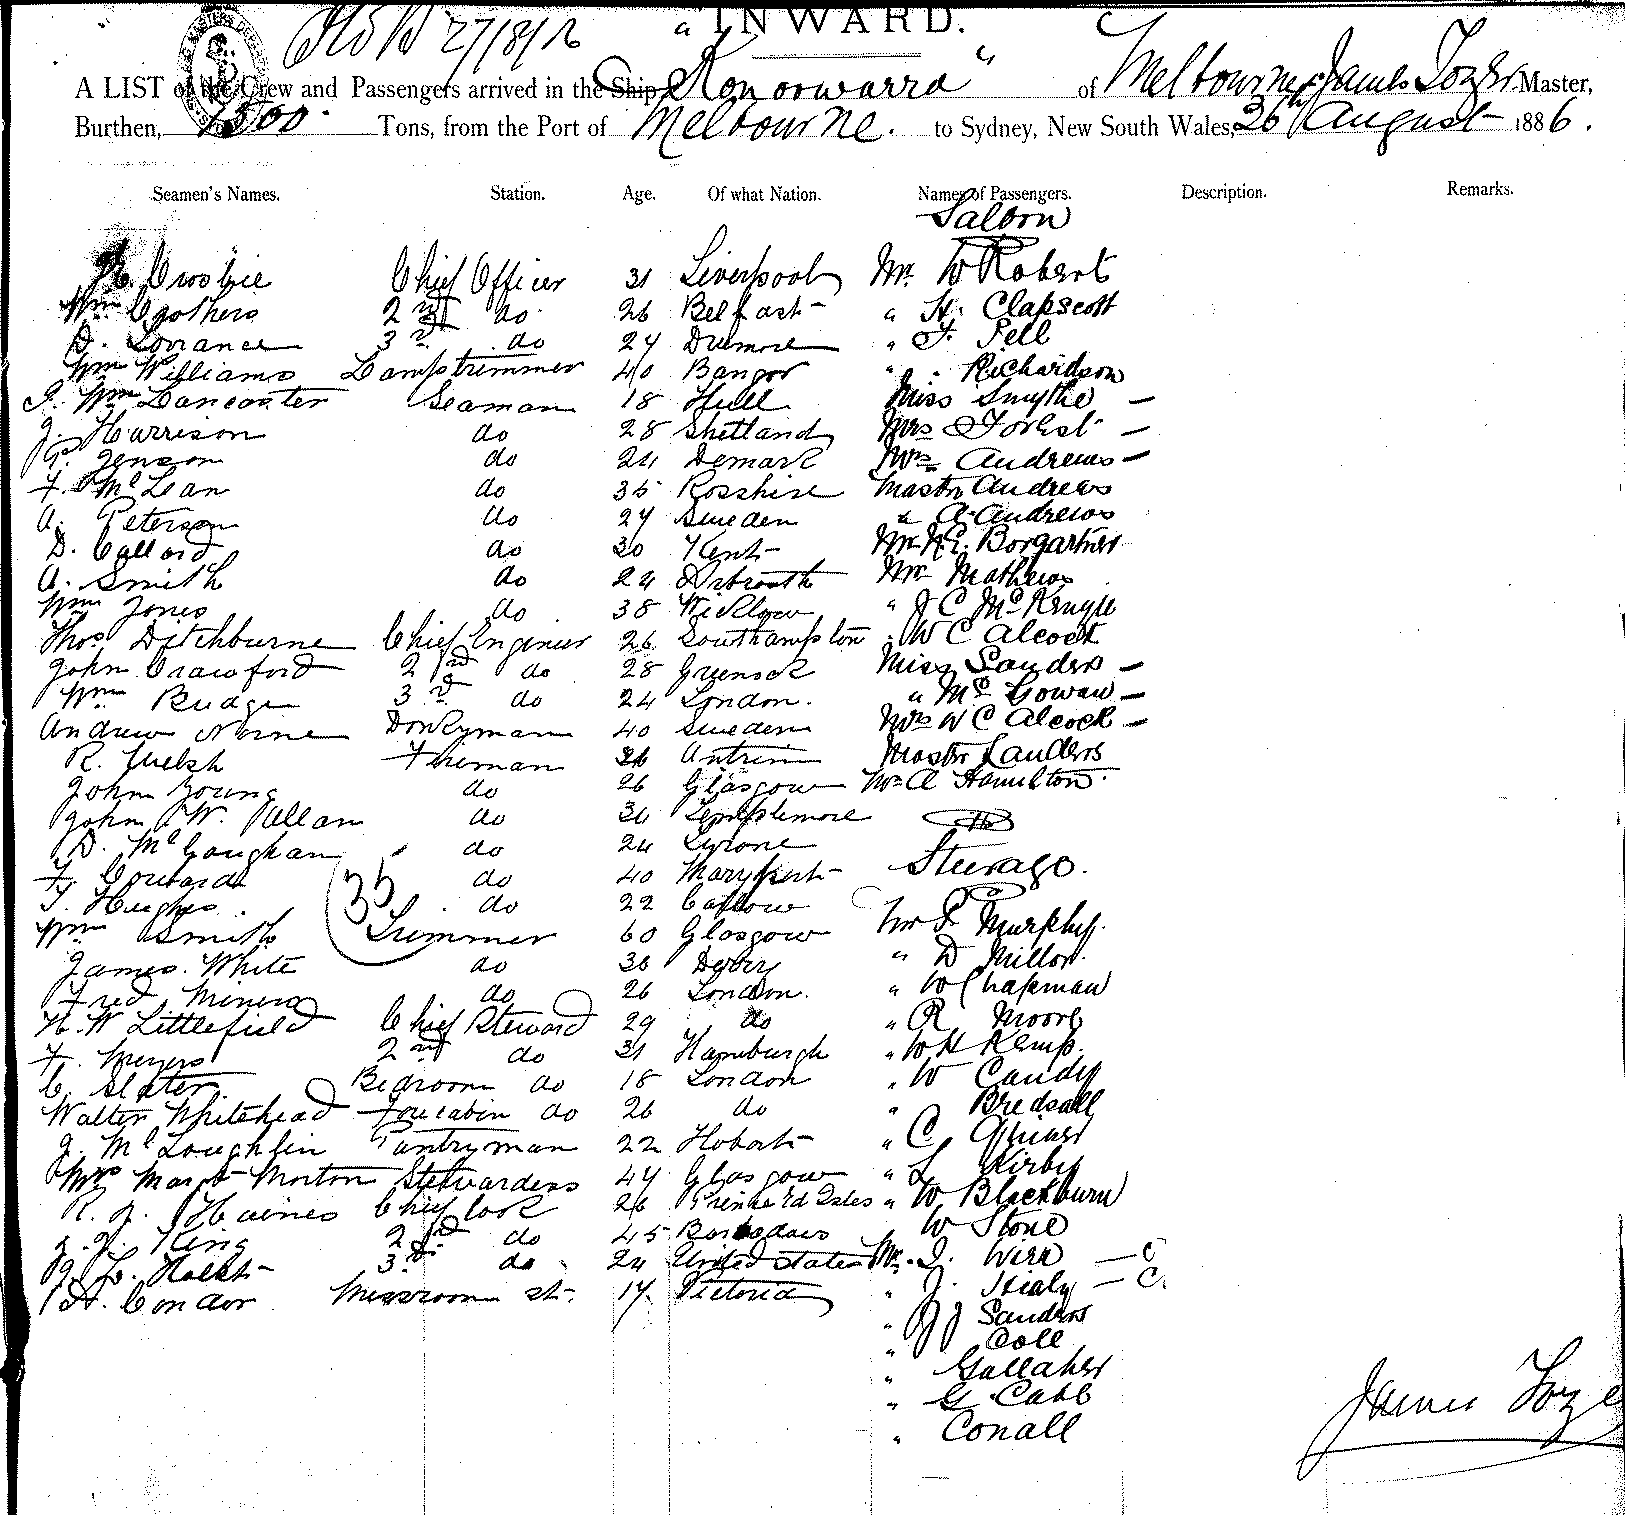 "INWARD.
A LIST of the Crew and Passengers arrived in the Ship "Konoowarra" of Melbourne, James Tozer Master,
Burthen, 1500 Tons, from the Port of Melbourne. to Sydney, New South Wales, 26th August 1886.
Seamen's Names. Station. Age. Of what Nation. Names of Passengers. Description. Remarks.
Saloon
Crosbie Chief Officer 31 Liverpool Mr. W Robert
Wm Crothers 2nd do 26 Belfast " H. Clapscott
D. Lorrance 3rd do 24 Dromore " F. Pell
Wm Williams Lamptrimmer 40 Bangor " Richardson
J. Wm Lancaster Seaman 18 Hull Miss Smythe —
J. Harrison do 28 Shetland Mrs Forest —
Jenson do 24 Demark Mrs Andrews —
F. McLean do 35 Rosshire Master Andrews
A. Peterson do 27 Sweden " A. Andrews
D. Callard do 30 Kent Mr Borgartner
A. Smith do 24 Arbroath Mr Mathews
Wm Jones do 38 Wicklow " J C
Thos Ditchburne Chief Engineer 26 Southampton " W C Alcock
John Crawford 2nd do 28 Greenock Miss Sanders —
Wm Budge 3rd do 24 London. " McGowan —
Andrew Norne Donkyman 40 Sweden Mrs W C Alcock —
R. Welsh Fireman 26 Antrim Master Sanders
John Young do 26 Glasgow Mr A Hamilton
John W. Allan do 30 Templemore
D. McGaughan do 24 Tyrone
F. Coward do 40 Maryport Steerage.
T. Hughes do 22 Carlow
35
Wm Smith Trimmer 60 Glasgow Mr P Murphy.
James White do 30 Derry " D Millor
Fred Miners do 26 London. " W Chapman
H. W Littlefield Chief Steward 29 do " R Moore
F. Meyers 2nd do 31 Hamburgh " W H Kemp.
C. Slater Bedroom do 18 London " W Candy
Walter Whitehead Forecabin do 26 do " Bredsall
J. McLoughlin Pantryman 22 Hobart " C.
Mrs Margt Morton Stewardess 47 Glasgow " L Kirby
R. J. Haines Chief Cook 26 Isles " W Blackburn
King 2nd do 45 Barbadoes W Stone
3rd do 24 United States Mr. J. Wera — C
H. Condor Messroom St. 17 Victoria " J. Healy — C.
" J J Sanders
" Cole
" Gallaher
" G Cabb
" Conall
James Toze